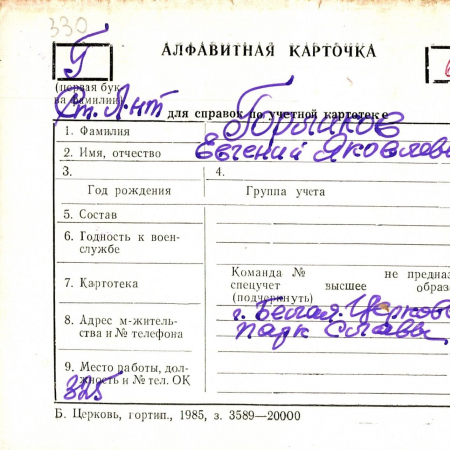 330
АЛФАВИТНАЯ КАРТОЧКА
Г
(первая бук-
ва фамилии)
Ст. Л-нт для справок по учетной картотеке
1. Фамилия
2. Имя, отчество Евгений Яковлеви
3. 4.
Год рождения Группа учета
5. Состав
6. Годность к воен-
службе
Команда № не предназ
7. Картотека спецучет высшее образ
(подчеркнуть)
г. Белая Церковь
8. Адрес м-житель-
ства и № телефона парк Славы
9. Место работы, дол-
жность и № тел. ОК
325
Б. Церковь, гортип., 1985, з. 3589—20000